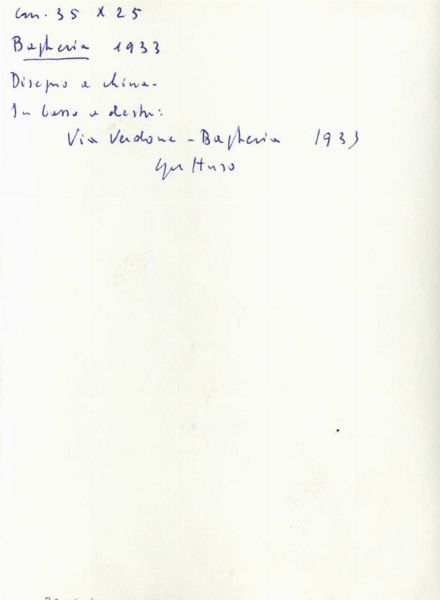 cm. 35 x 25
Bagheria 1933
Disegno a china-
In basso a destra:
Via Verdone - Bagheria 1933